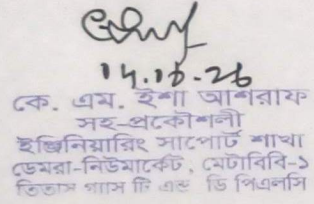 কে. এম. ইশা আশরাফ
সহ-প্রকৌশলী
ইঞ্জিনিয়ারিং সাপোর্ট শাখা
ডেমরা-নিউমার্কেট, মেটাবিবি-১
তিতাস গ্যাস টি এন্ড ডি পিএলসি